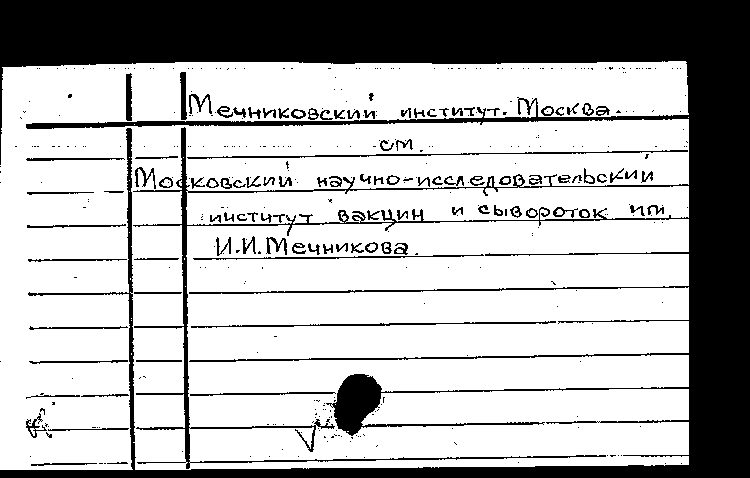 Мечниковский институт. Москва.
см.
Московский научно-исследовательский
институт вакцин и сывороток им.
И.И.Мечникова.